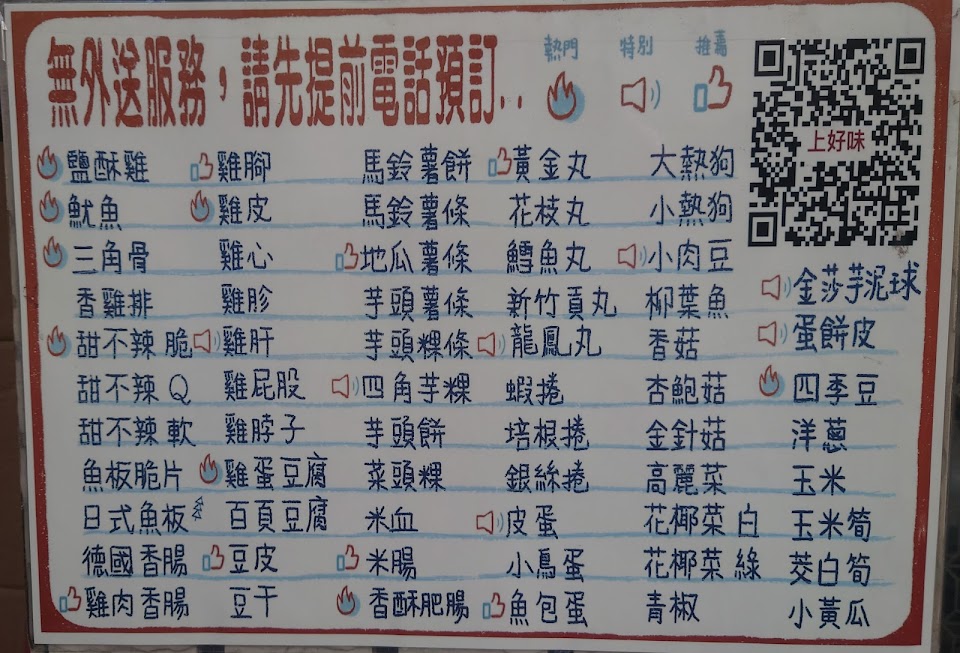 無外送服務，請先提前電話預訂..
熱門 特別 推薦
上好味
鹽酥雞 雞腳 馬鈴薯餅 黃金丸 大熱狗
魷魚 雞皮 馬鈴薯條 花枝丸 小熱狗
三角骨 雞心 地瓜薯條 鱈魚丸 小肉豆
香雞排 雞胗 芋頭薯條 新竹貢丸 柳葉魚 金莎芋泥球
甜不辣 脆 雞肝 芋頭粿條 龍鳳丸 香菇 蛋餅皮
甜不辣 Q 雞屁股 四角芋粿 蝦捲 杏鮑菇 四季豆
甜不辣 軟 雞脖子 芋頭餅 培根捲 金針菇 洋蔥
魚板脆片 雞蛋豆腐 菜頭粿 銀絲捲 高麗菜 玉米
日式魚板 百頁豆腐 米血 皮蛋 花椰菜 白 玉米筍
德國香腸 豆皮 米腸 小鳥蛋 花椰菜 綠 茭白筍
雞肉香腸 豆干 香酥肥腸 魚包蛋 青椒 小黃瓜